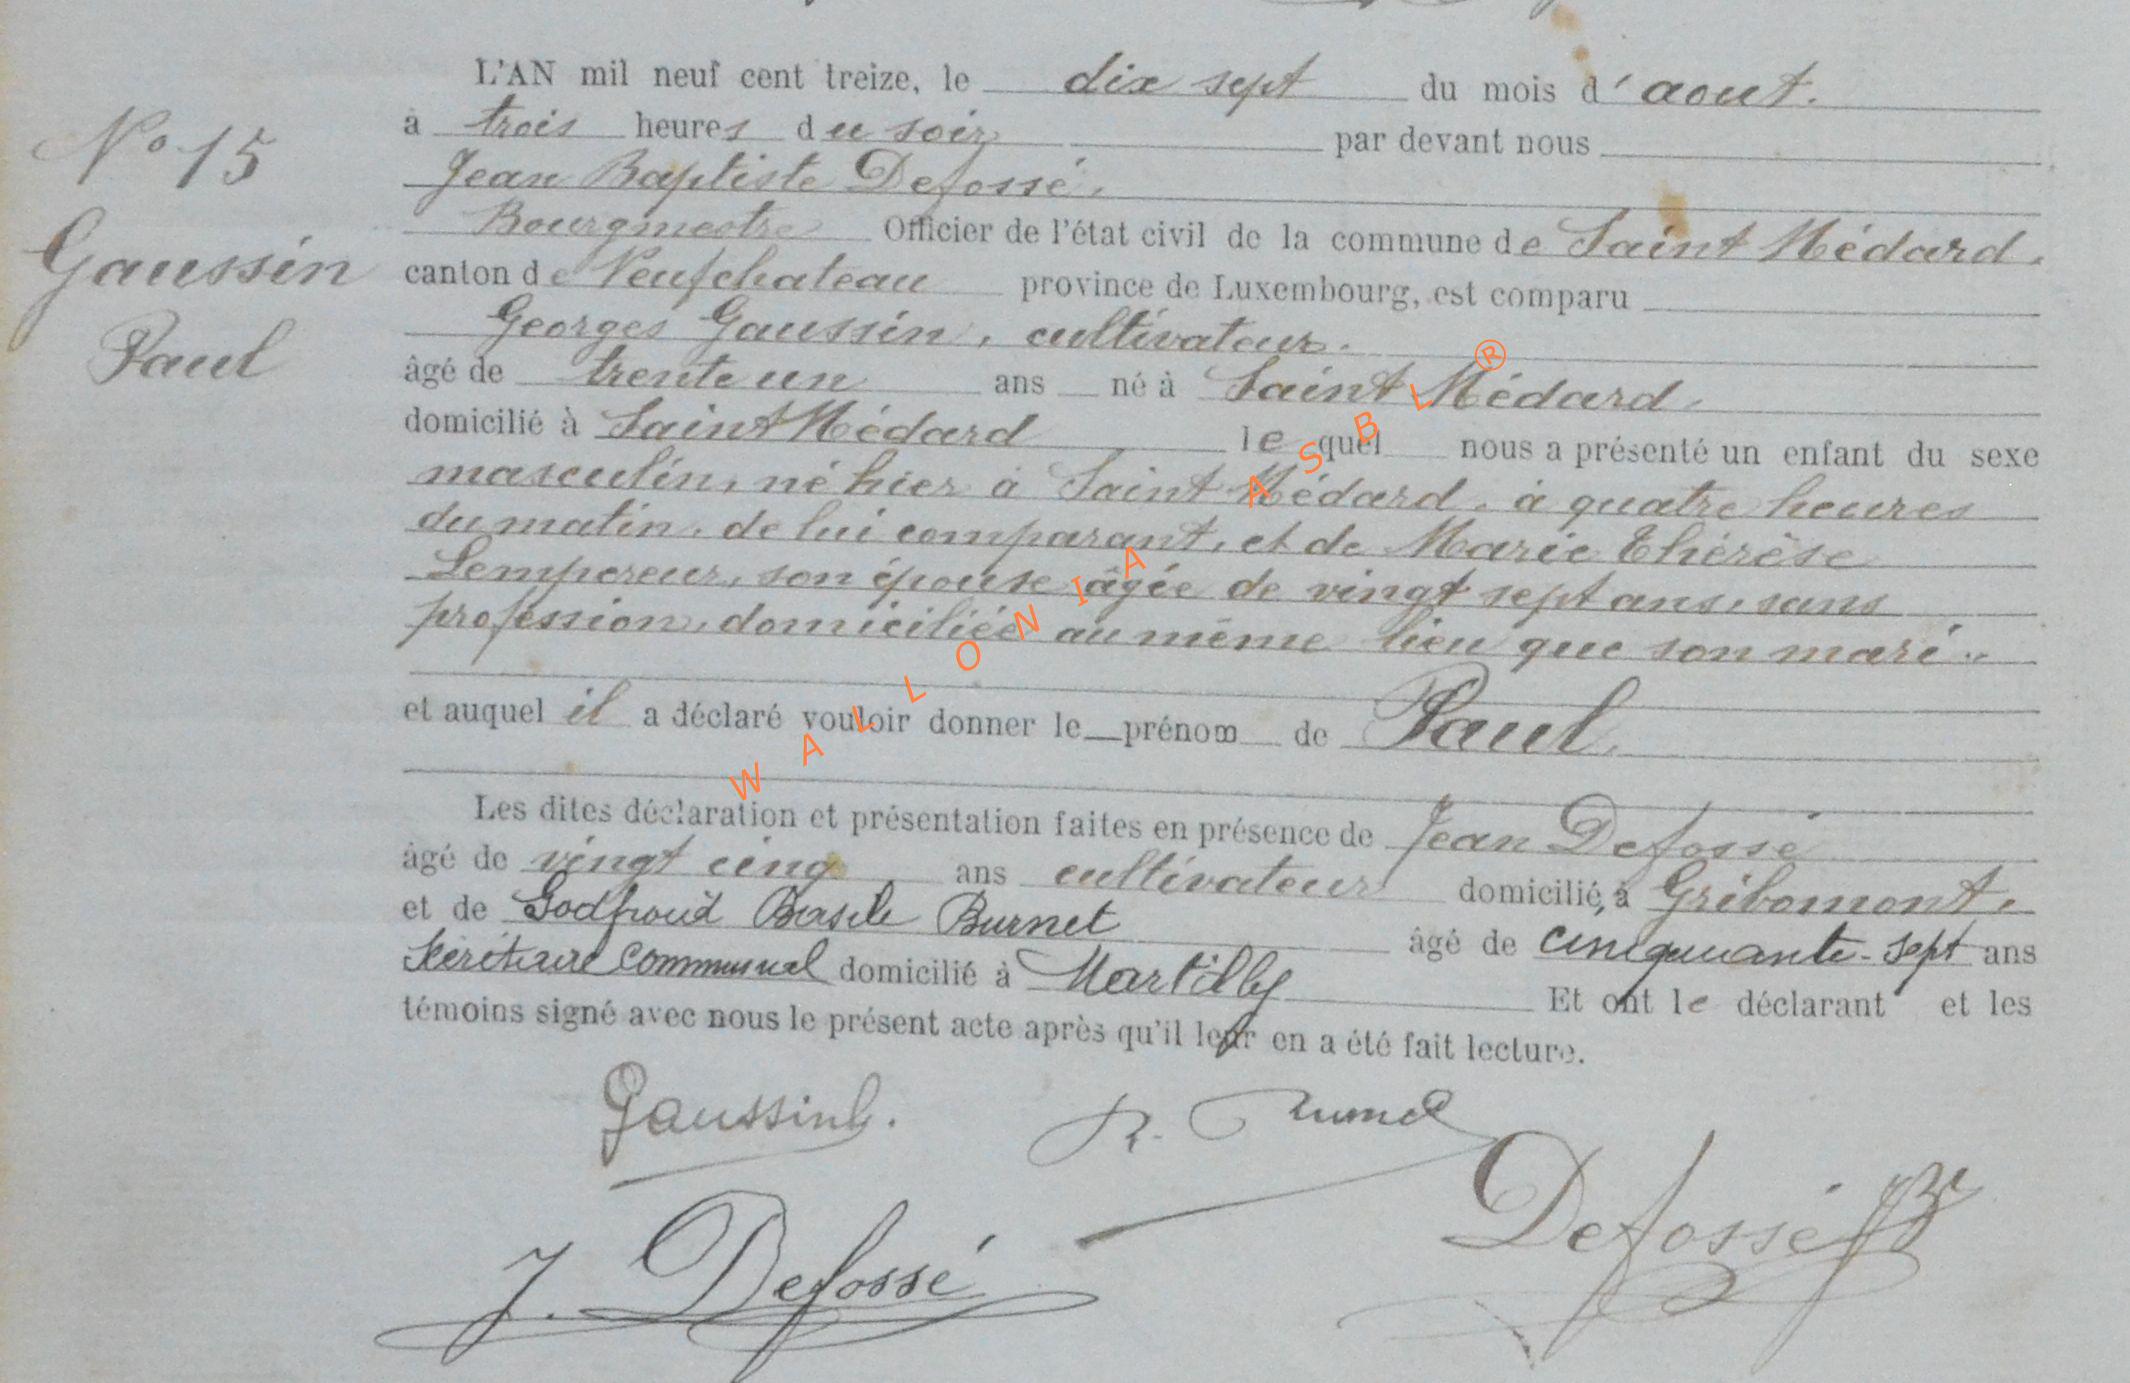 L'AN mil neuf cent treize, le dix sept du mois d'aout.
N° 15
à trois heures du soir par devant nous
Jean Baptiste Defossé,
Gaussin
Bourgmestre Officier de l'état civil de la commune de Saint Médard,
canton de Neufchateau province de Luxembourg, est comparu
Paul
Georges Gaussin, cultivateur.
âgé de trente un ans né à Saint Médard,
domicilié à Saint Médard lequel nous a présenté un enfant du sexe
masculin, né hier à Saint Médard, à quatre heures
du matin, de lui comparant, et de Marie Thérèse
Lempereur, son épouse âgée de vingt sept ans, sans
profession, domiciliée au même lieu que son mari..
et auquel il a déclaré vouloir donner le prénom de Paul.
Les dites déclaration et présentation faites en présence de Jean Defossé
âgé de vingt cinq ans cultivateur domicilié, à Gribomont,
et de Godfroid Basile Burnet âgé de cinquante-sept ans
secrétaire communal domicilié à Martilly Et ont le déclarant et les
témoins signé avec nous le présent acte après qu'il leur en a été fait lecture.
Gaussin G.
J. Defossé
Defossé JB
WALLONIA ASBL ®